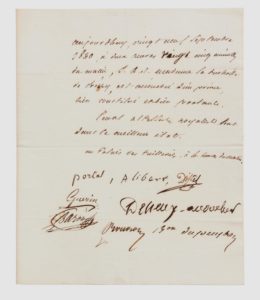 aujourdhuy vingt neuf septembre
à deux heures vingt cinq minutes
du matin, S. A. R. madame la duchesse
de Berry, est accouchée d'un prince
bien constitué et bien portant.
dans le meilleur état.
au Palais des Tuilleries, à
portal, Alibert,
Guérin
Baron
Deneux - accoucheur
Bougon